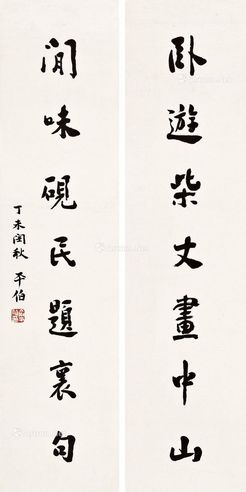 卧遊柴丈畫中山
閒味硯民題裏句
丁未閏秋 平伯